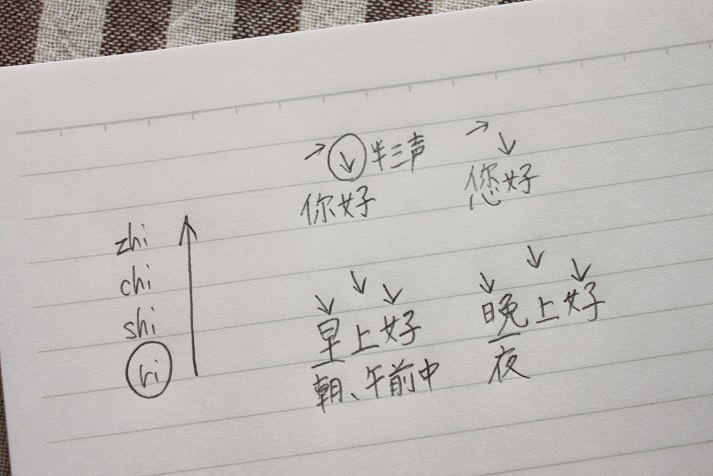 半三声
你好
您好
zhi
chi
shi
ri
早上好
晚上好
朝、午前中
夜